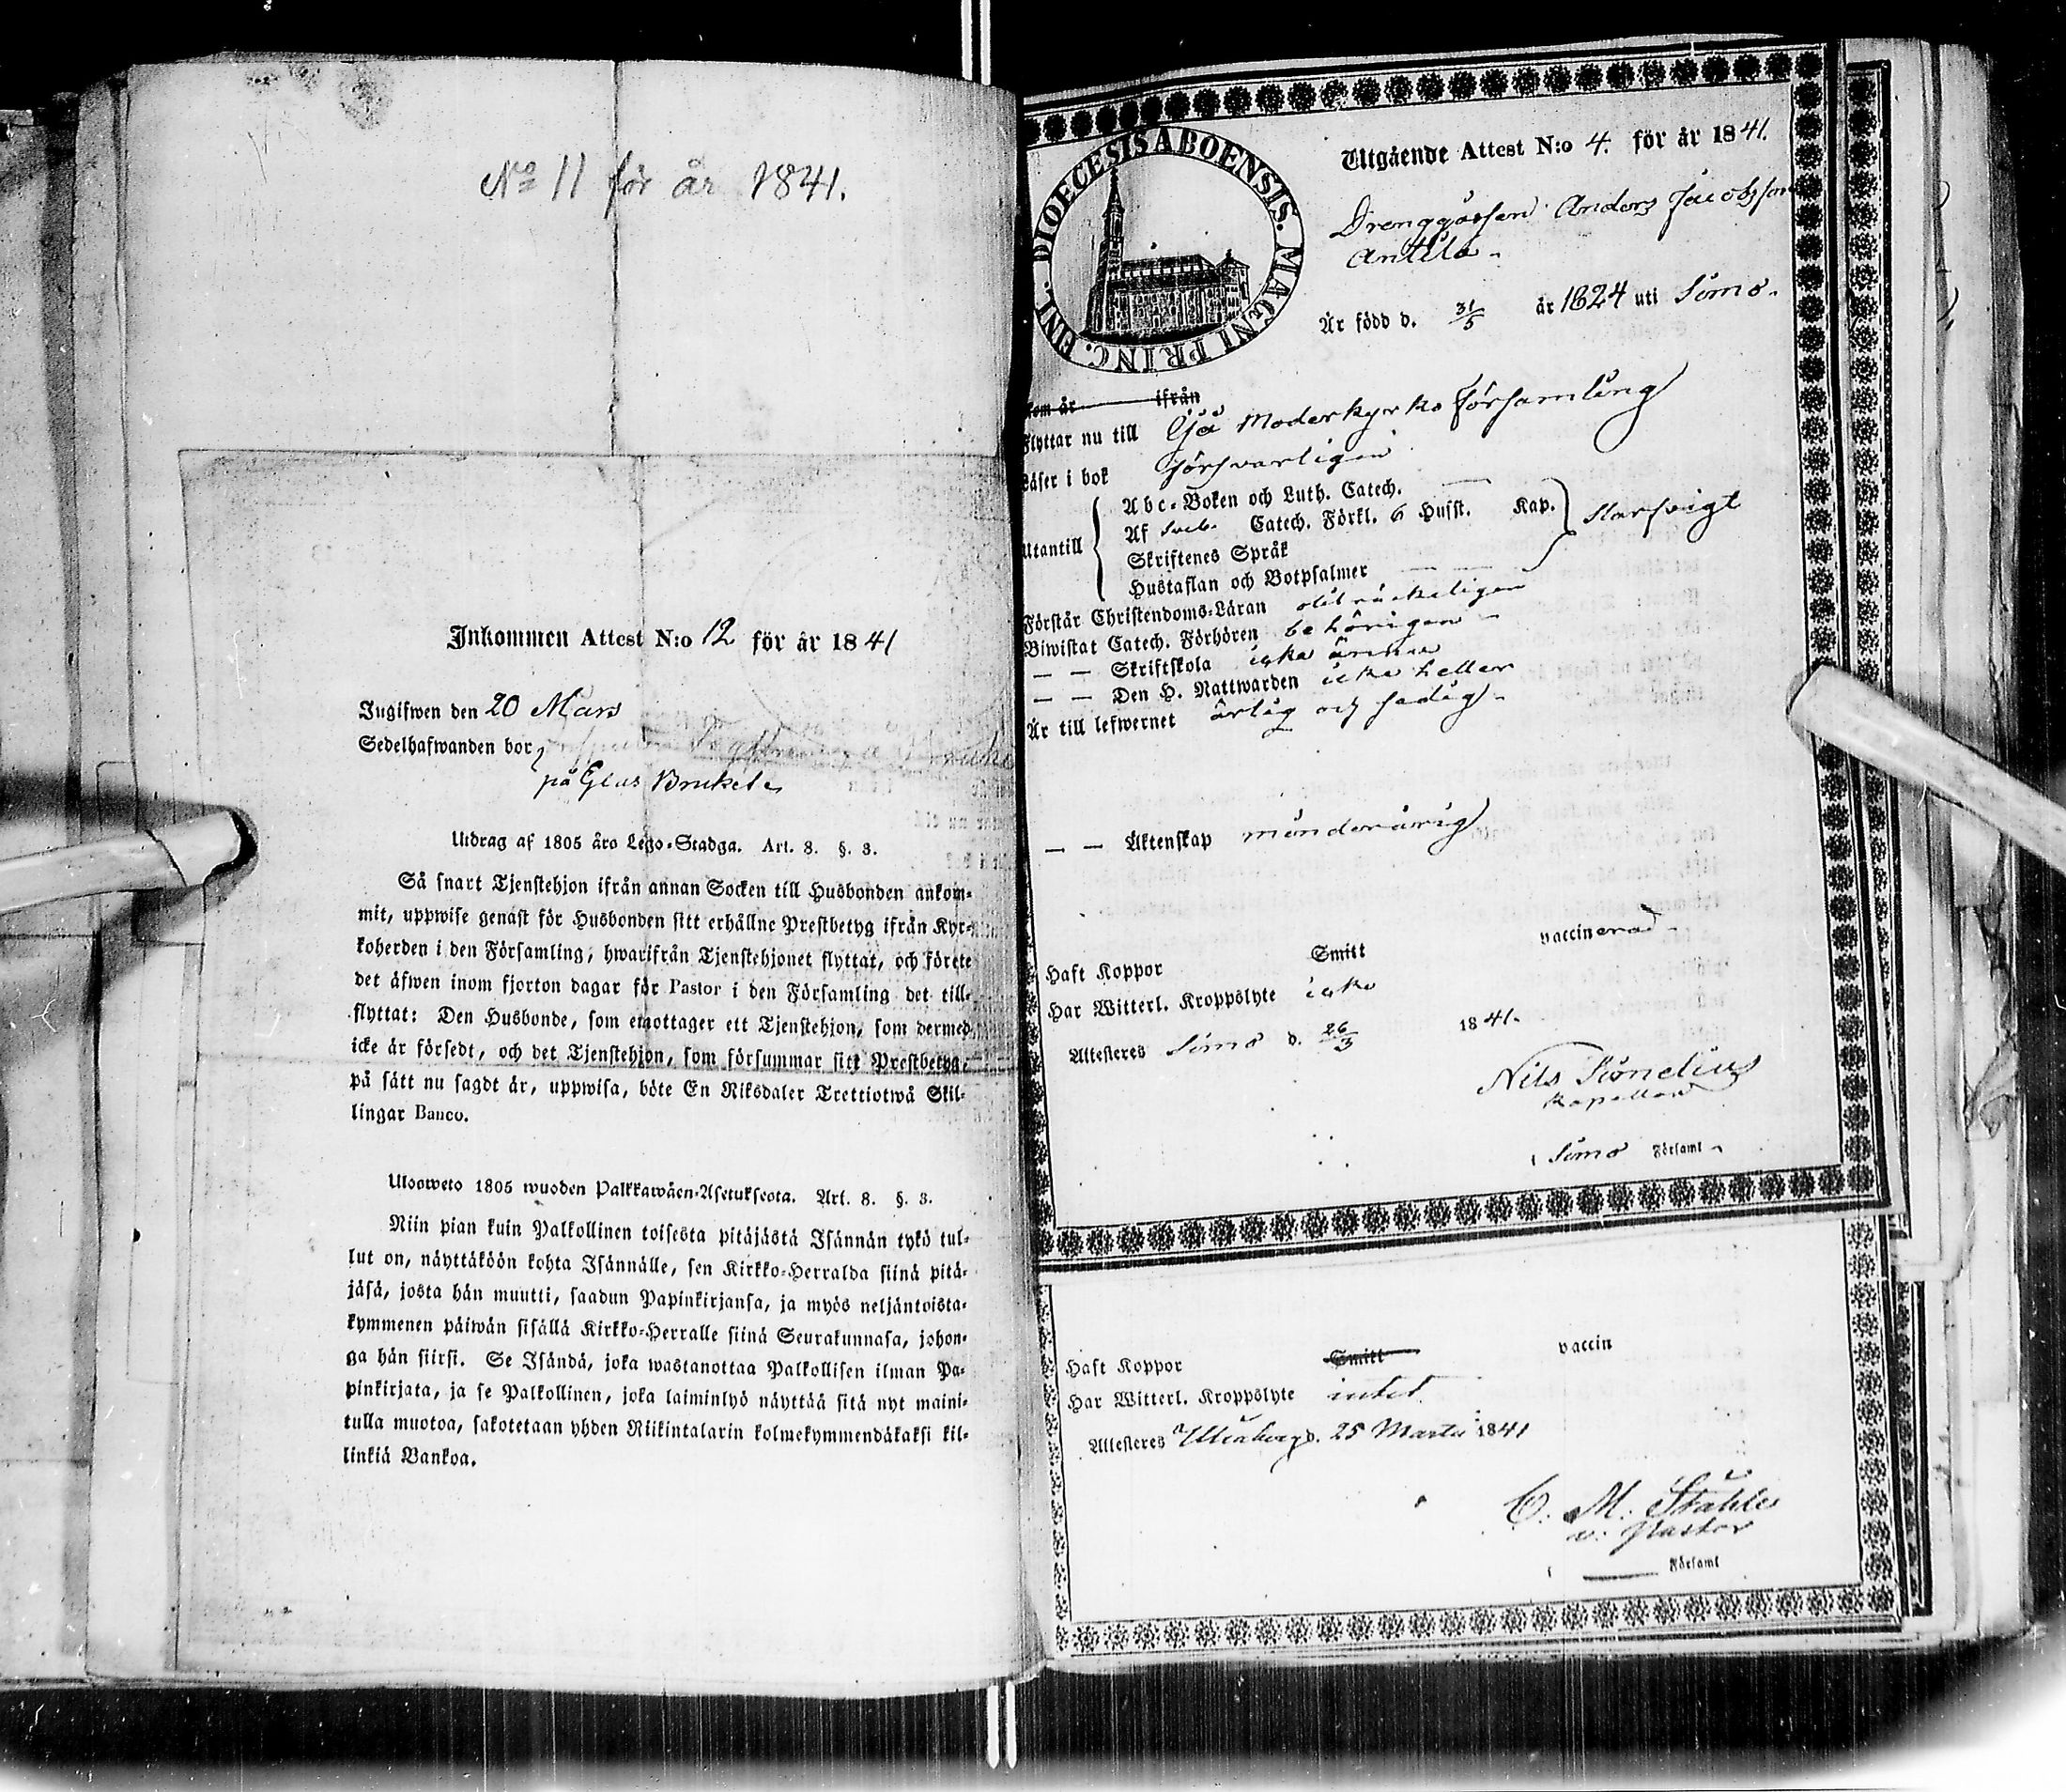 No 11 för år 1841.
Inkommen Attest N:o 12 för år 1841
Ingifwen den 20 Mars
Sedelhafwanden bor
på Glas Bruket
Utdrag af 1805 års Lego-Stadga. Art. 8. §. 3.
Så snart Tjenstehjon ifrån annan Socken till Husbonden ankom-
mit, uppwise genast för Husbonden sitt erhållne Prestbetyg ifrån Kyr-
koherden i den Församling, hwarifrån Tjenstehjonet flyttat, och förete
det äfwen inom fjorton dagar för Pastor i den Församling det till-
flyttat: Den Husbonde, som emottager ett Tjenstehjon, som dermed
icke är försedt, och det Tjenstehjon, som försummar sitt Prestbetyg,
på sätt nu sagdt är, uppwisa, böte En Riksdaler Trettiotwå Skil-
lingar Banco.
Ulosweto 1805 wuoden Palkkawäen-Asetuksesta. Art. 8. §. 3.
Niin pian kuin Palkollinen toisesta pitäjästä Isännän tykö tul-
lut on, näyttäköön kohta Isännälle, sen Kirkko-Herralda siinä pitä-
jäsä, josta hän muutti, saadun Papinkirjansa, ja myös neljäntoista-
kymmenen päiwän sisällä Kirkko-Herralle siinä Seurakunnasa, johon-
ga hän siirsi. Se Isändä, joka wastanottaa Palkollisen ilman Pa-
pinkirjata, ja se Palkollinen, joka laiminlyö näyttää sitä nyt maini-
tulla muotoa, sakotetaan yhden Riikintalarin kolmekymmendäkaksi kil-
linkiä Bankoa.
DIOECESIS ABOENSIS. MAGNI PRINC. FINL.
Utgående Attest N:o 4. för år 1841.
Drenggåssen Anders Jacobsson
Antila
Är född d. 31/5 år 1824 uti Somo.
Kom år ifrån
Flyttar nu till Moderkyrko Församling
Läser i bok försvarligen
Utantill
Abc-Boken och Luth. Catech.
Af Sveb. Catech. Förkl. 6 Hufst. Kap.
Skriftenes Språk
Hustaflan och Botpsalmer
Förstår Christendoms-Läran
Biwistat Catech. Förhören behörigen
— — Skriftskola icke ännu
— — Den H. Nattwarden icke heller
Är till lefwernet ärlig och sedig
— — Äktenskap minderårig
Haft Koppor Smitt vaccinerad
Har Witterl. Kroppslyte icke
Attesteres Somo d. 26/3 1841.
Kapellan
i Somo Församl
Haft Koppor Smitt vaccin
Har Witterl. Kroppslyte intet
Attesteres d. 25 Martii 1841
C. M. Ståhle
v. Pastor
i Församl